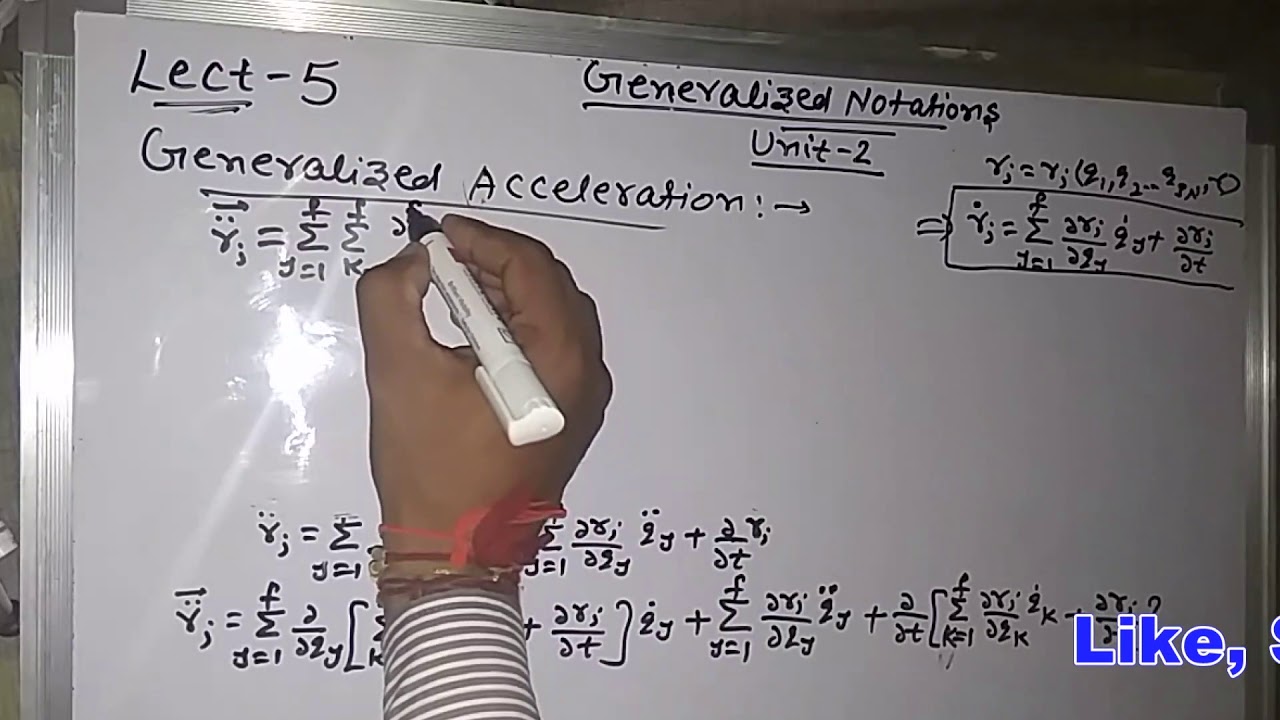 Lect-5
Generalized Notations
Unit-2
Generalized Acceleration:→
rⱼ = rⱼ (q₁, q₂ ...
⇒ ṙⱼ = Σ_{y=1}^{f} ∂rⱼ/∂q_y q̇_y + ∂rⱼ/∂t
r̈ⱼ = Σ_{y=1}^{f} Σ_{k}^{f} ∂
r̈ⱼ = Σ_{y=1} Σ_{y=1} ∂rⱼ/∂q_y q̈_y + ∂/∂t rⱼ
r̈ⱼ = Σ_{y=1}^{f} ∂/∂q_y [ + ∂rⱼ/∂t ] q̇_y + Σ_{y=1}^{f} ∂rⱼ/∂q_y q̈_y + ∂/∂t [ Σ_{k=1}^{f} ∂rⱼ/∂q_k q̇_k + ∂rⱼ
Like,